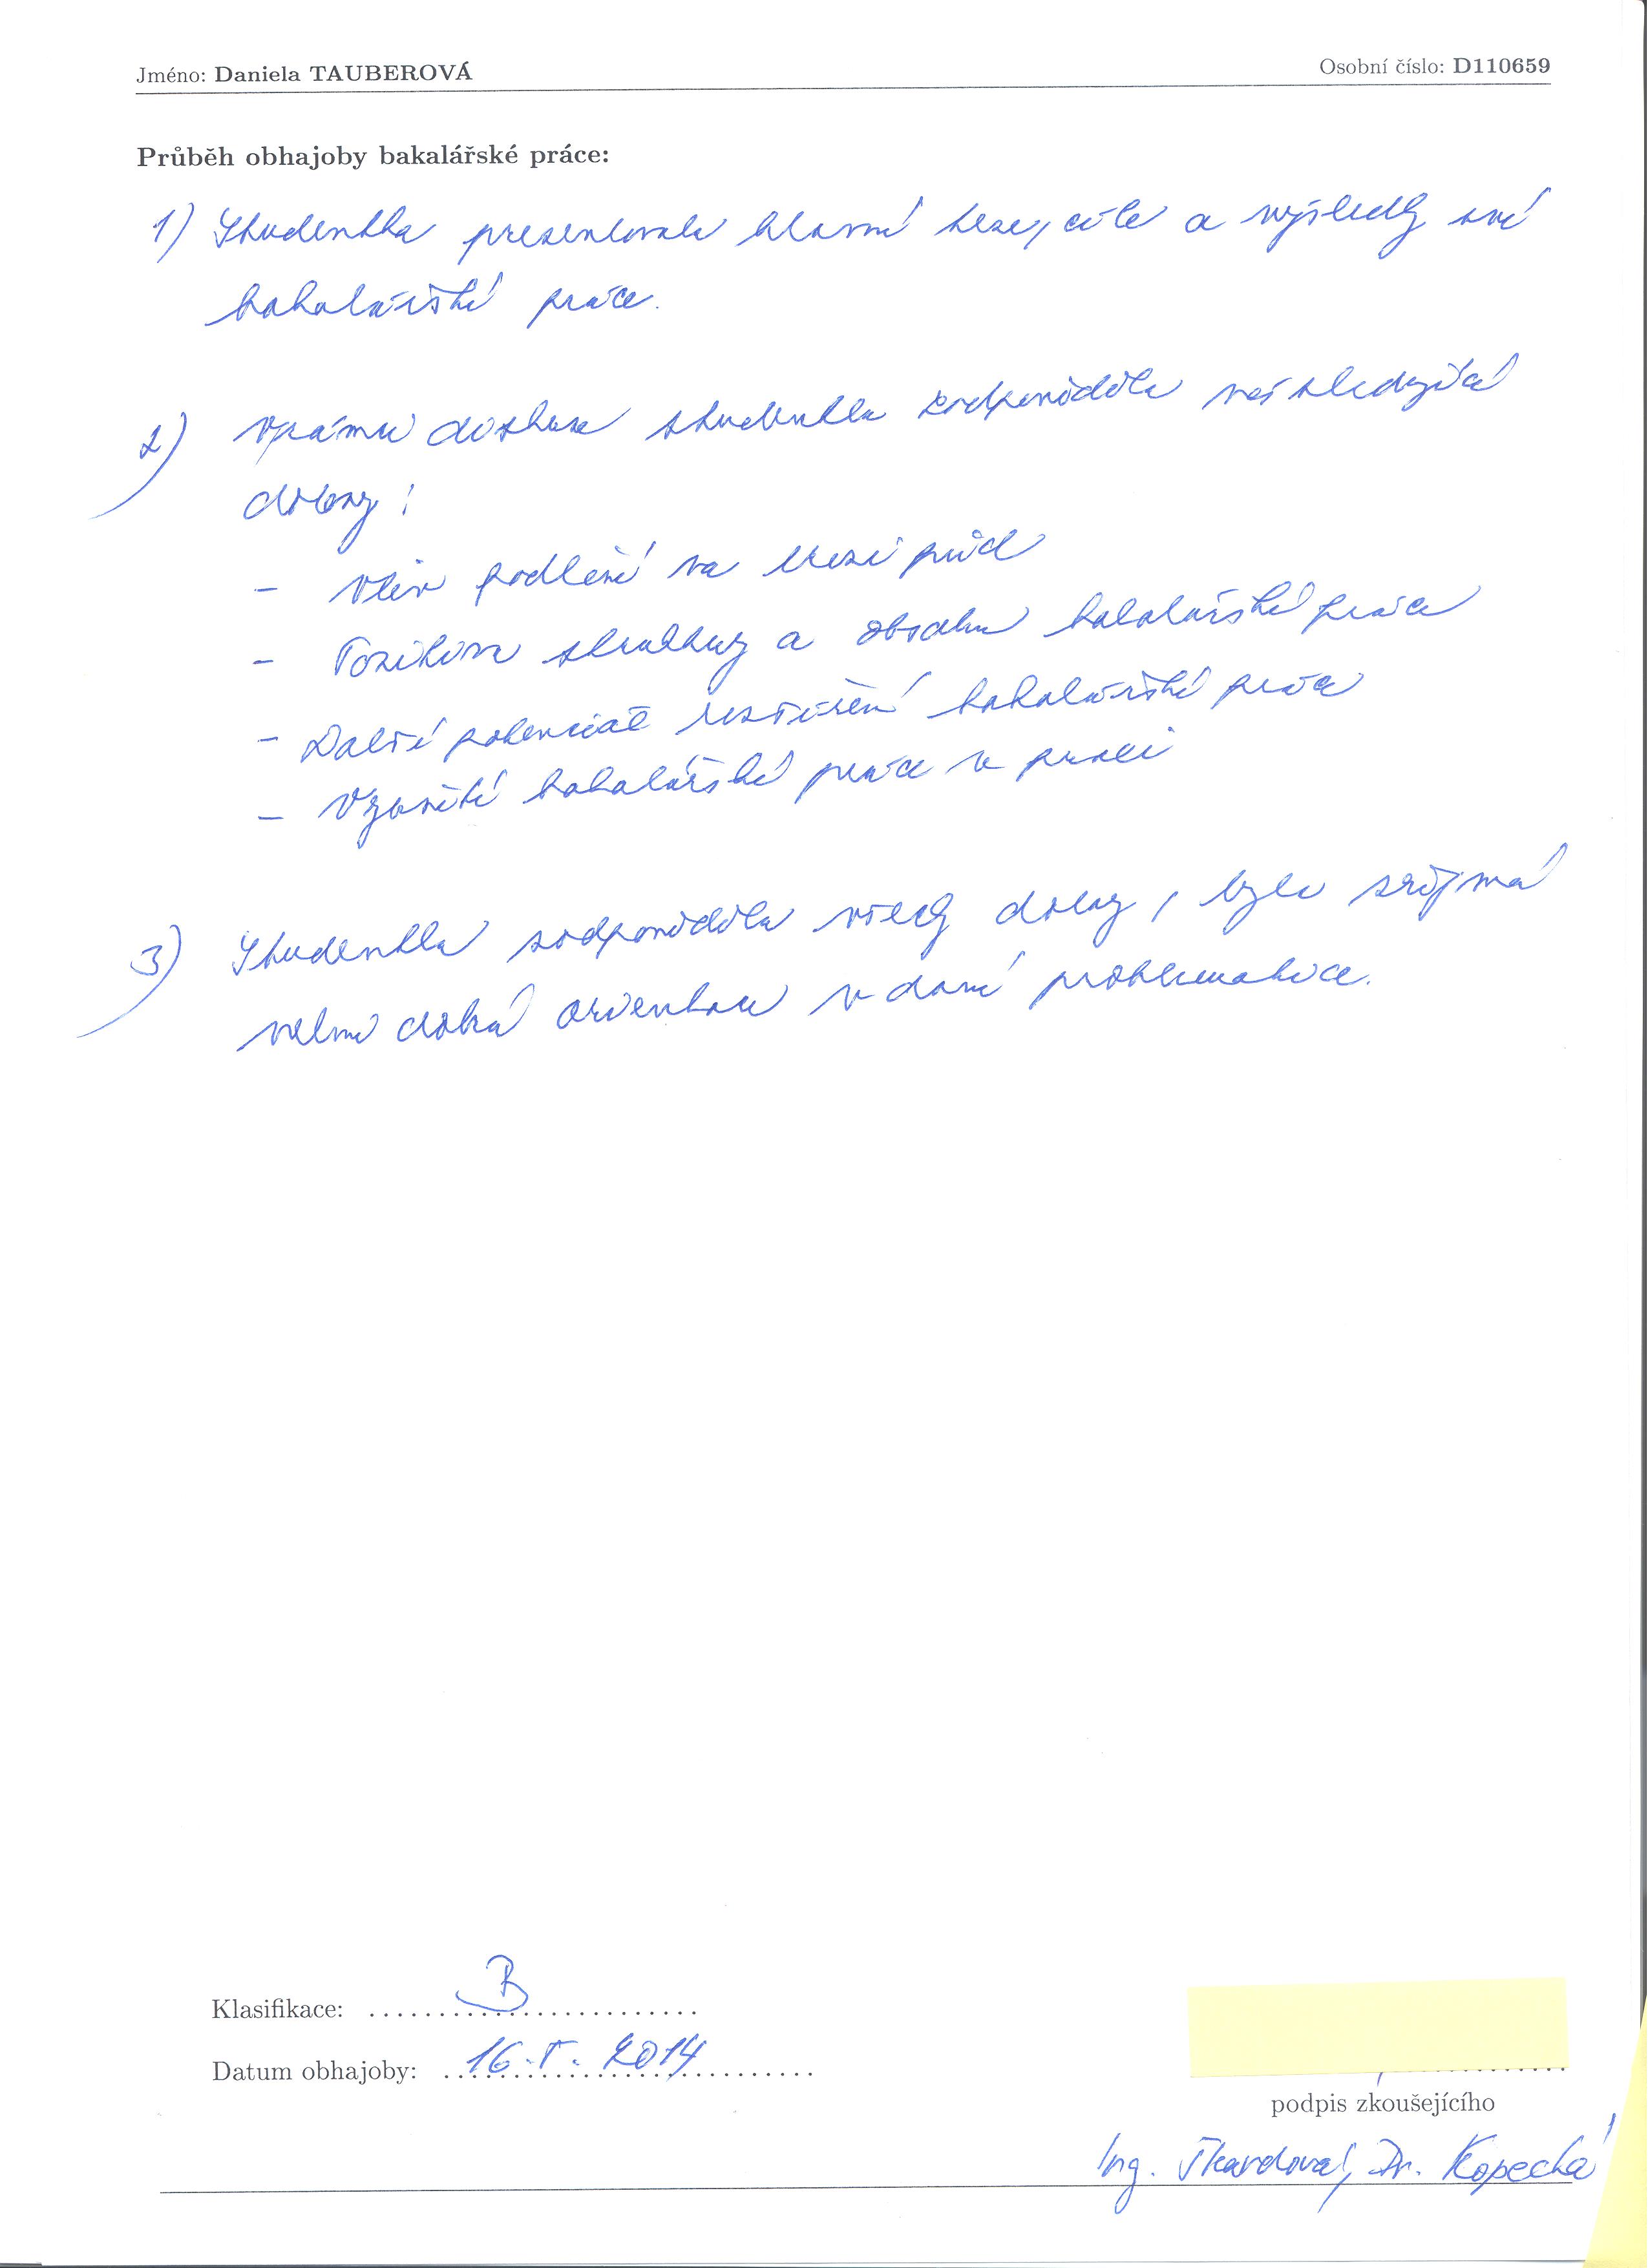 Jméno: Daniela TAUBEROVÁ Osobní číslo: D110659
Průběh obhajoby bakalářské práce:
1) Studentka prezentovala hlavní teze, cíle a výsledky své
bakalářské práce.
2) V rámci diskuse studentka zodpověděla následující
dotazy:
- Vliv podlení na
- struktury a obsahu bakalářské práce
- Další potenciál rozšíření bakalářské práce
- Využití bakalářské práce v praxi
3) Studentka zodpověděla všechny dotazy, byla zřejmá
velmi dobrá orientace v dané problematice.
Klasifikace: B
Datum obhajoby: 16. 2014
podpis zkoušejícího
Ing. Dr. Kopecká